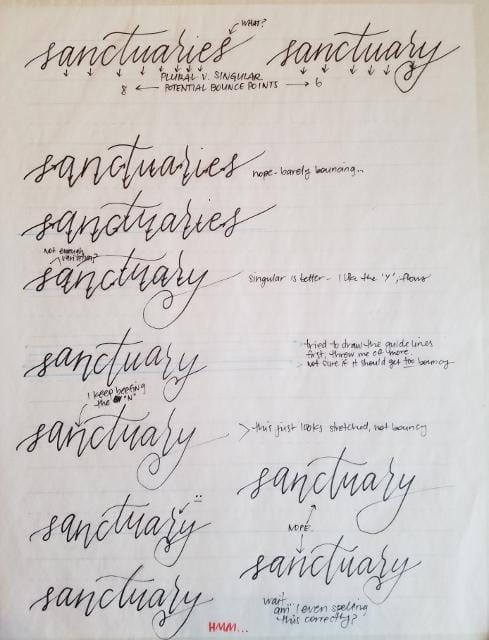 WHAT?
sanctuaries sanctuary
PLURAL V. SINGULAR
8 ← POTENTIAL BOUNCE POINTS → 6
sanctuaries nope - barely bouncing...
sanctuaries
not enough
variation?
sanctuary singular is better - I like the 'Y', flows
sanctuary
- tried to draw the guidelines
first, threw me off more.
- Not sure if it should get too bouncy
I keep beefing
the "N"
sanctuary > this just looks stretched, not bouncy
sanctuary
sanctuary
NOPE.
sanctuary
sanctuary
wait
am I even spelling
this correctly?
HMM...